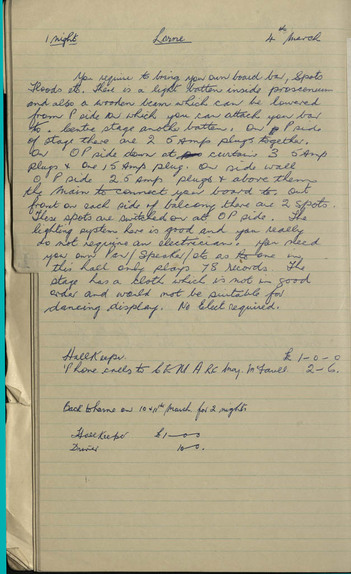 1 night Larne 4th March
You require to bring your own board bar, Spots
Floods etc. There is a light batten inside proscenium
and also a wooden beam which can be lowered
from P side on which you can attach your bar
to. Centre stage another batten. On P side
of stage there are 2 5 Amps plugs together.
On OP side down at curtain 3 5 Amp
plugs & one 15 Amp plug. On side wall
O P side 2 5 Amp plugs & above them
the Main to connect your board to. Out
front on each side of balcony there are 2 Spots.
These spots are switched on at OP side. The
lighting system here is good and you really
do not require an electrician. You need
your own Pan/Speaker/etc as the one in
this hall only plays 78 records. The
stage has a cloth which is not in good
order and would not be suitable for
dancing display. No Elect required.
Hall Keeper £ 1-0-0
'Phone calls to C E M A Re May. McFaull 2-6.
Back to Larne on 10 & 11th March for 2 nights
Hall Keeper £1-0-0
Driver 10-0.